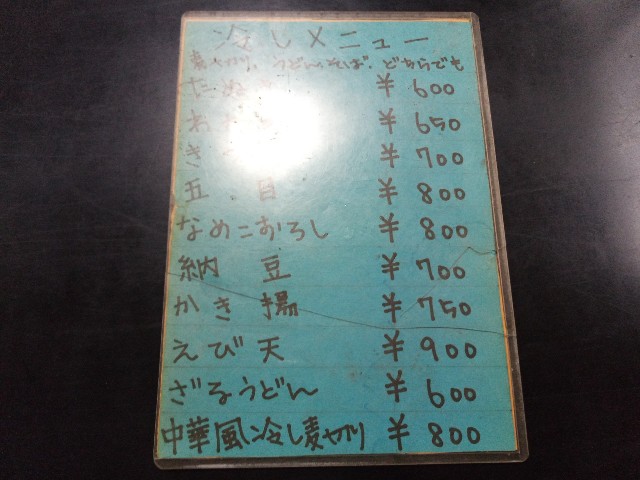 冷しメニュー
麦切り、うどん、そば、どちらでも
たぬ ¥600
わ ¥650
き ¥700
五目 ¥800
なめこおろし ¥800
納豆 ¥700
かき揚 ¥750
えび天 ¥900
ざるうどん ¥600
中華風冷し麦切り ¥800